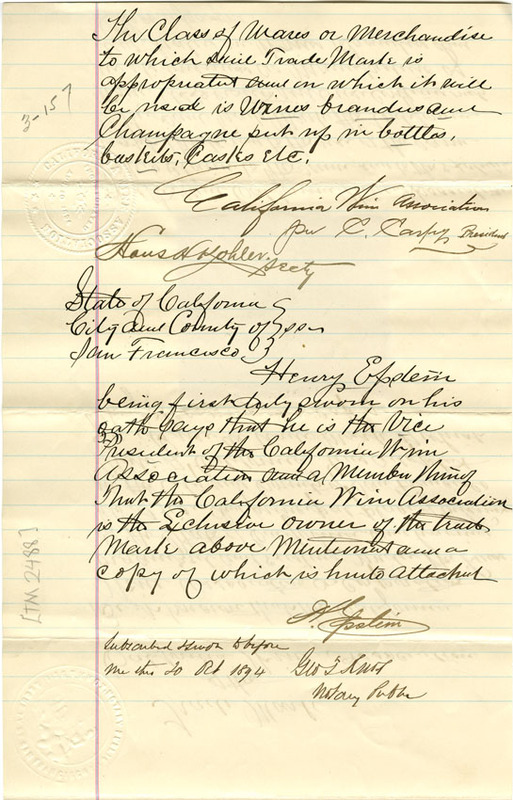 The Class of Wares or Merchandise
to which said Trade Mark is
appropriated and in which it will
be used is Wines brandies and
Champagne put up in bottles,
baskets, Casks etc.
3-157
California Wine Association
per C. Carpy President
Hans H Kohler Secty
State of California
City and County of ss
San Francisco
Henry Epstein
being first duly sworn on his
oath Says that he is the Vice
President of the California Wine
Association and a Member thereof
That the California Wine Association
is the Exclusive owner of the trade
Mark above Mentioned and a
copy of which is hereto attached
H Epstein
Subscribed & sworn to before
me this 20 Oct 1894
Geo T Knox
Notary Public
[TM 2488]